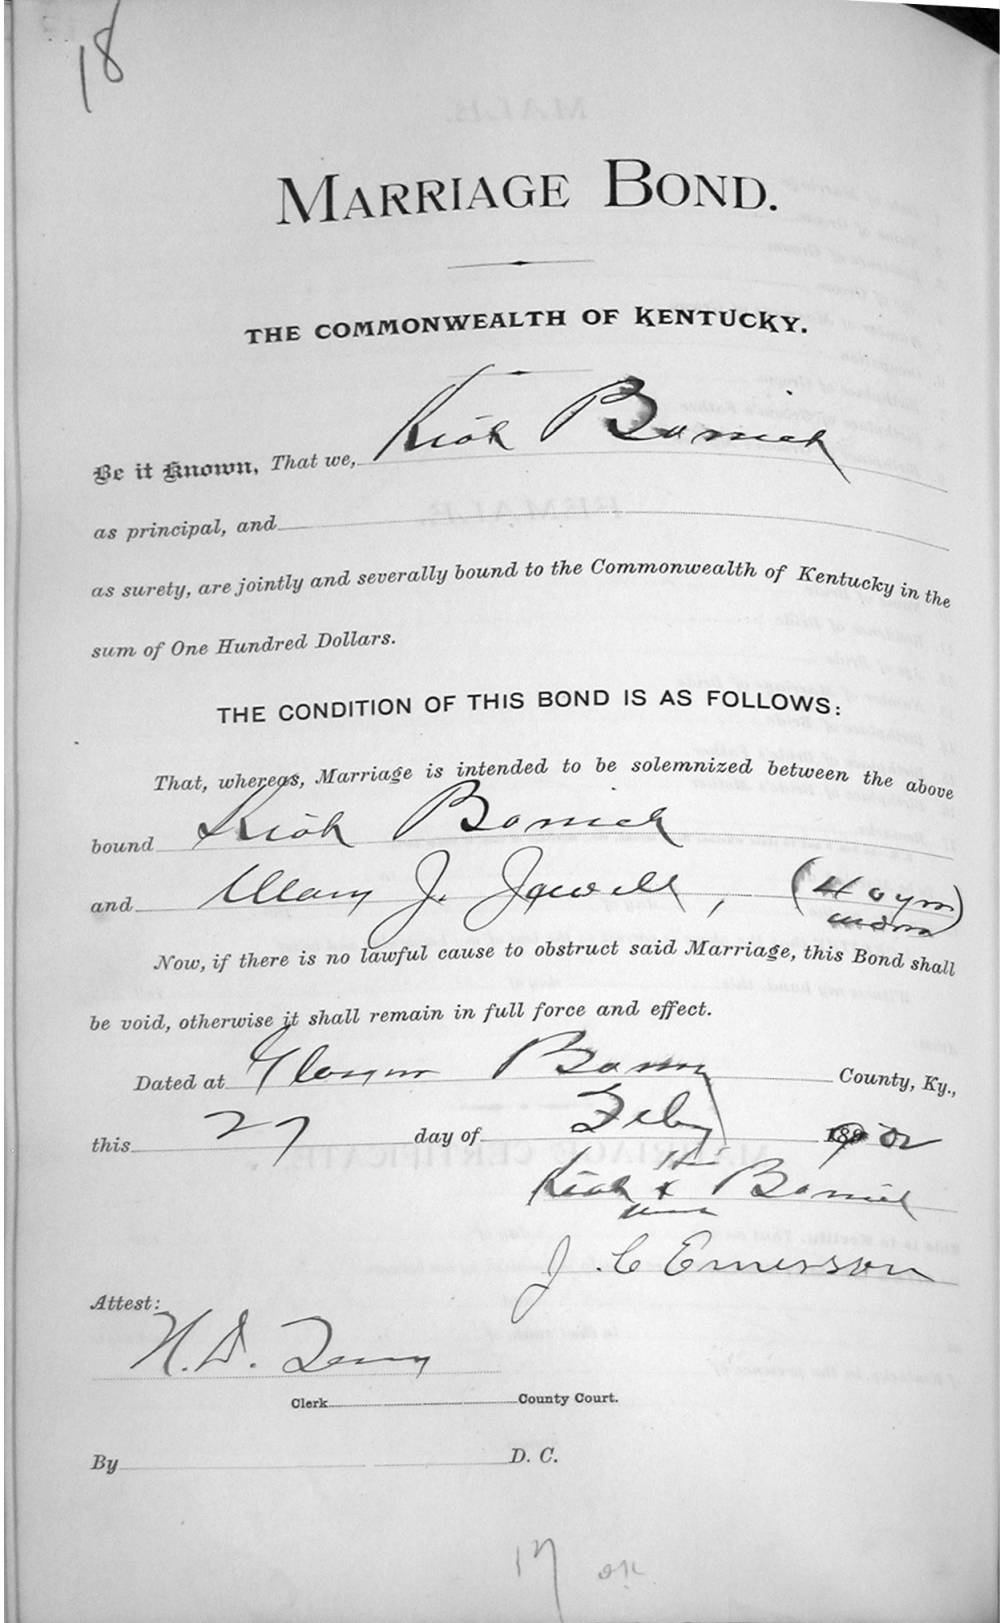 18
MARRIAGE BOND.
THE COMMONWEALTH OF KENTUCKY.
Be it Known, That we,
as principal, and
as surety, are jointly and severally bound to the Commonwealth of Kentucky in the
sum of One Hundred Dollars.
THE CONDITION OF THIS BOND IS AS FOLLOWS:
That, whereas, Marriage is intended to be solemnized between the above
bound
and Mary J. Jewell, (40 yrs
Now, if there is no lawful cause to obstruct said Marriage, this Bond shall
be void, otherwise it shall remain in full force and effect.
Dated at County, Ky.,
this 27 day of Feby 02
J. C. Emerson
Attest:
Clerk County Court.
By D. C.
17 OK